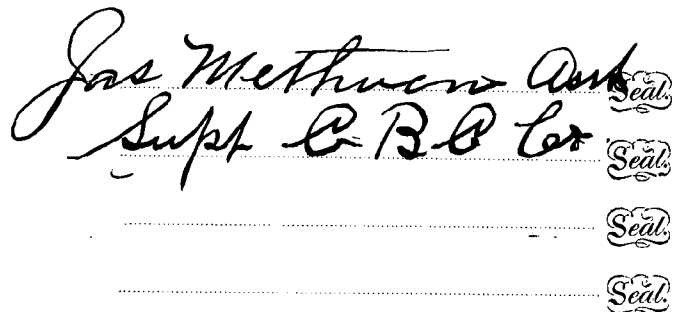 Jas Methven Asst Seal.
Supt C B C Co. Seal.
Seal.
Seal.